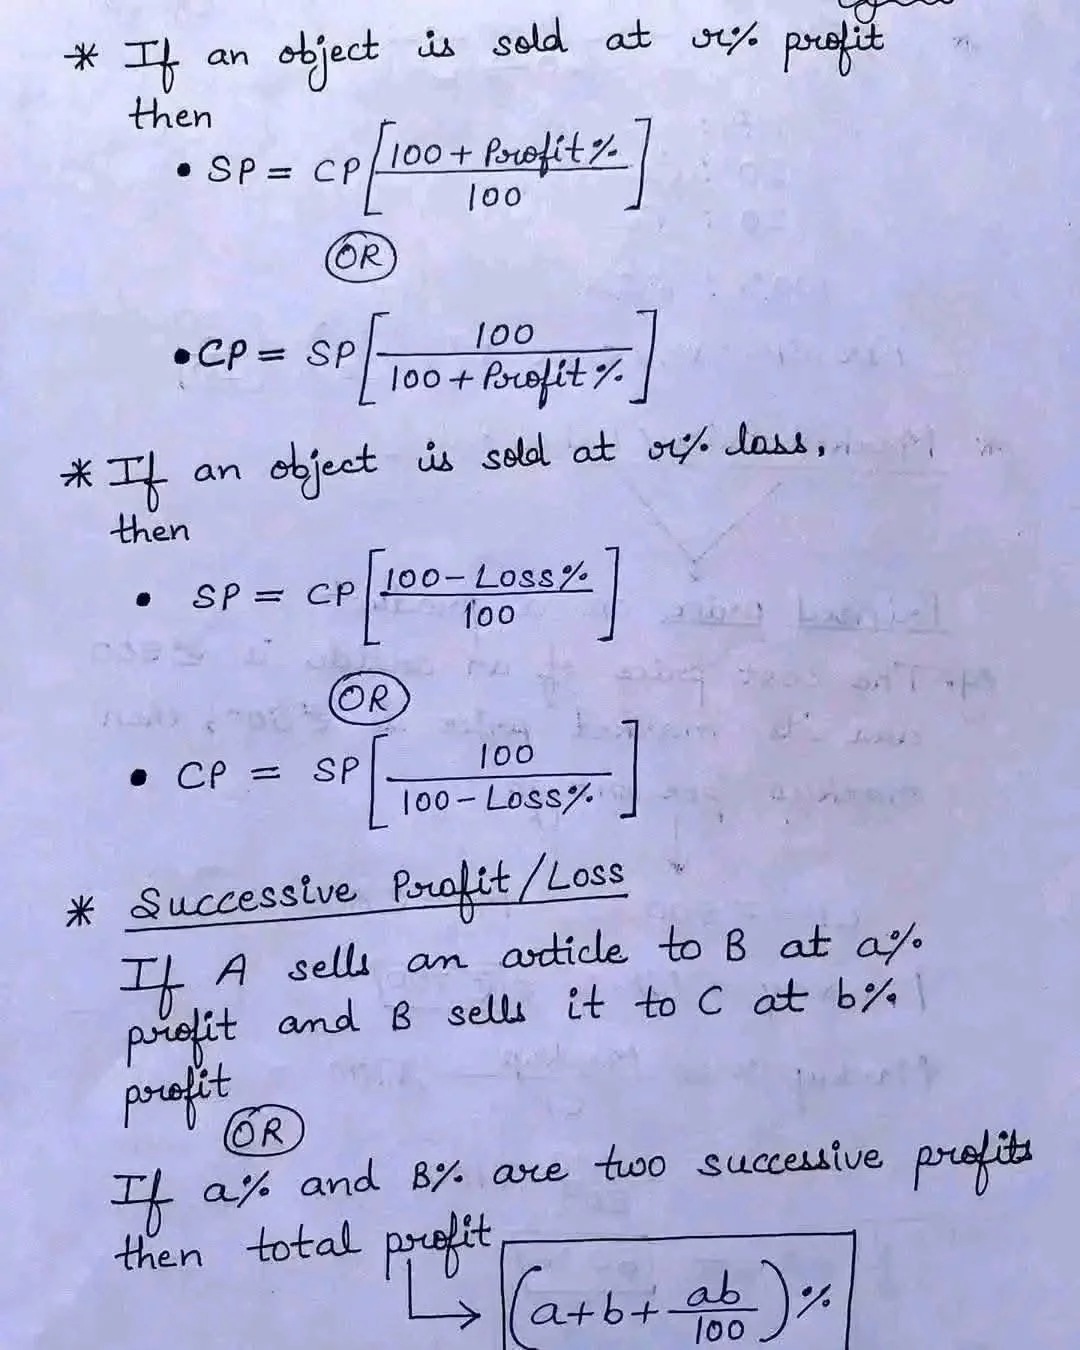 * If an object is sold at r% profit
then
• SP = CP [100 + Profit% / 100]
OR
• CP = SP [100 / 100 + Profit%]
* If an object is sold at r% loss,
then
• SP = CP [100 - Loss% / 100]
OR
• CP = SP [100 / 100 - Loss%]
* Successive Profit/Loss
If A sells an article to B at a%
profit and B sells it to C at b%
profit
OR
If a% and B% are two successive profits
then total profit
(a+b+ ab/100)%